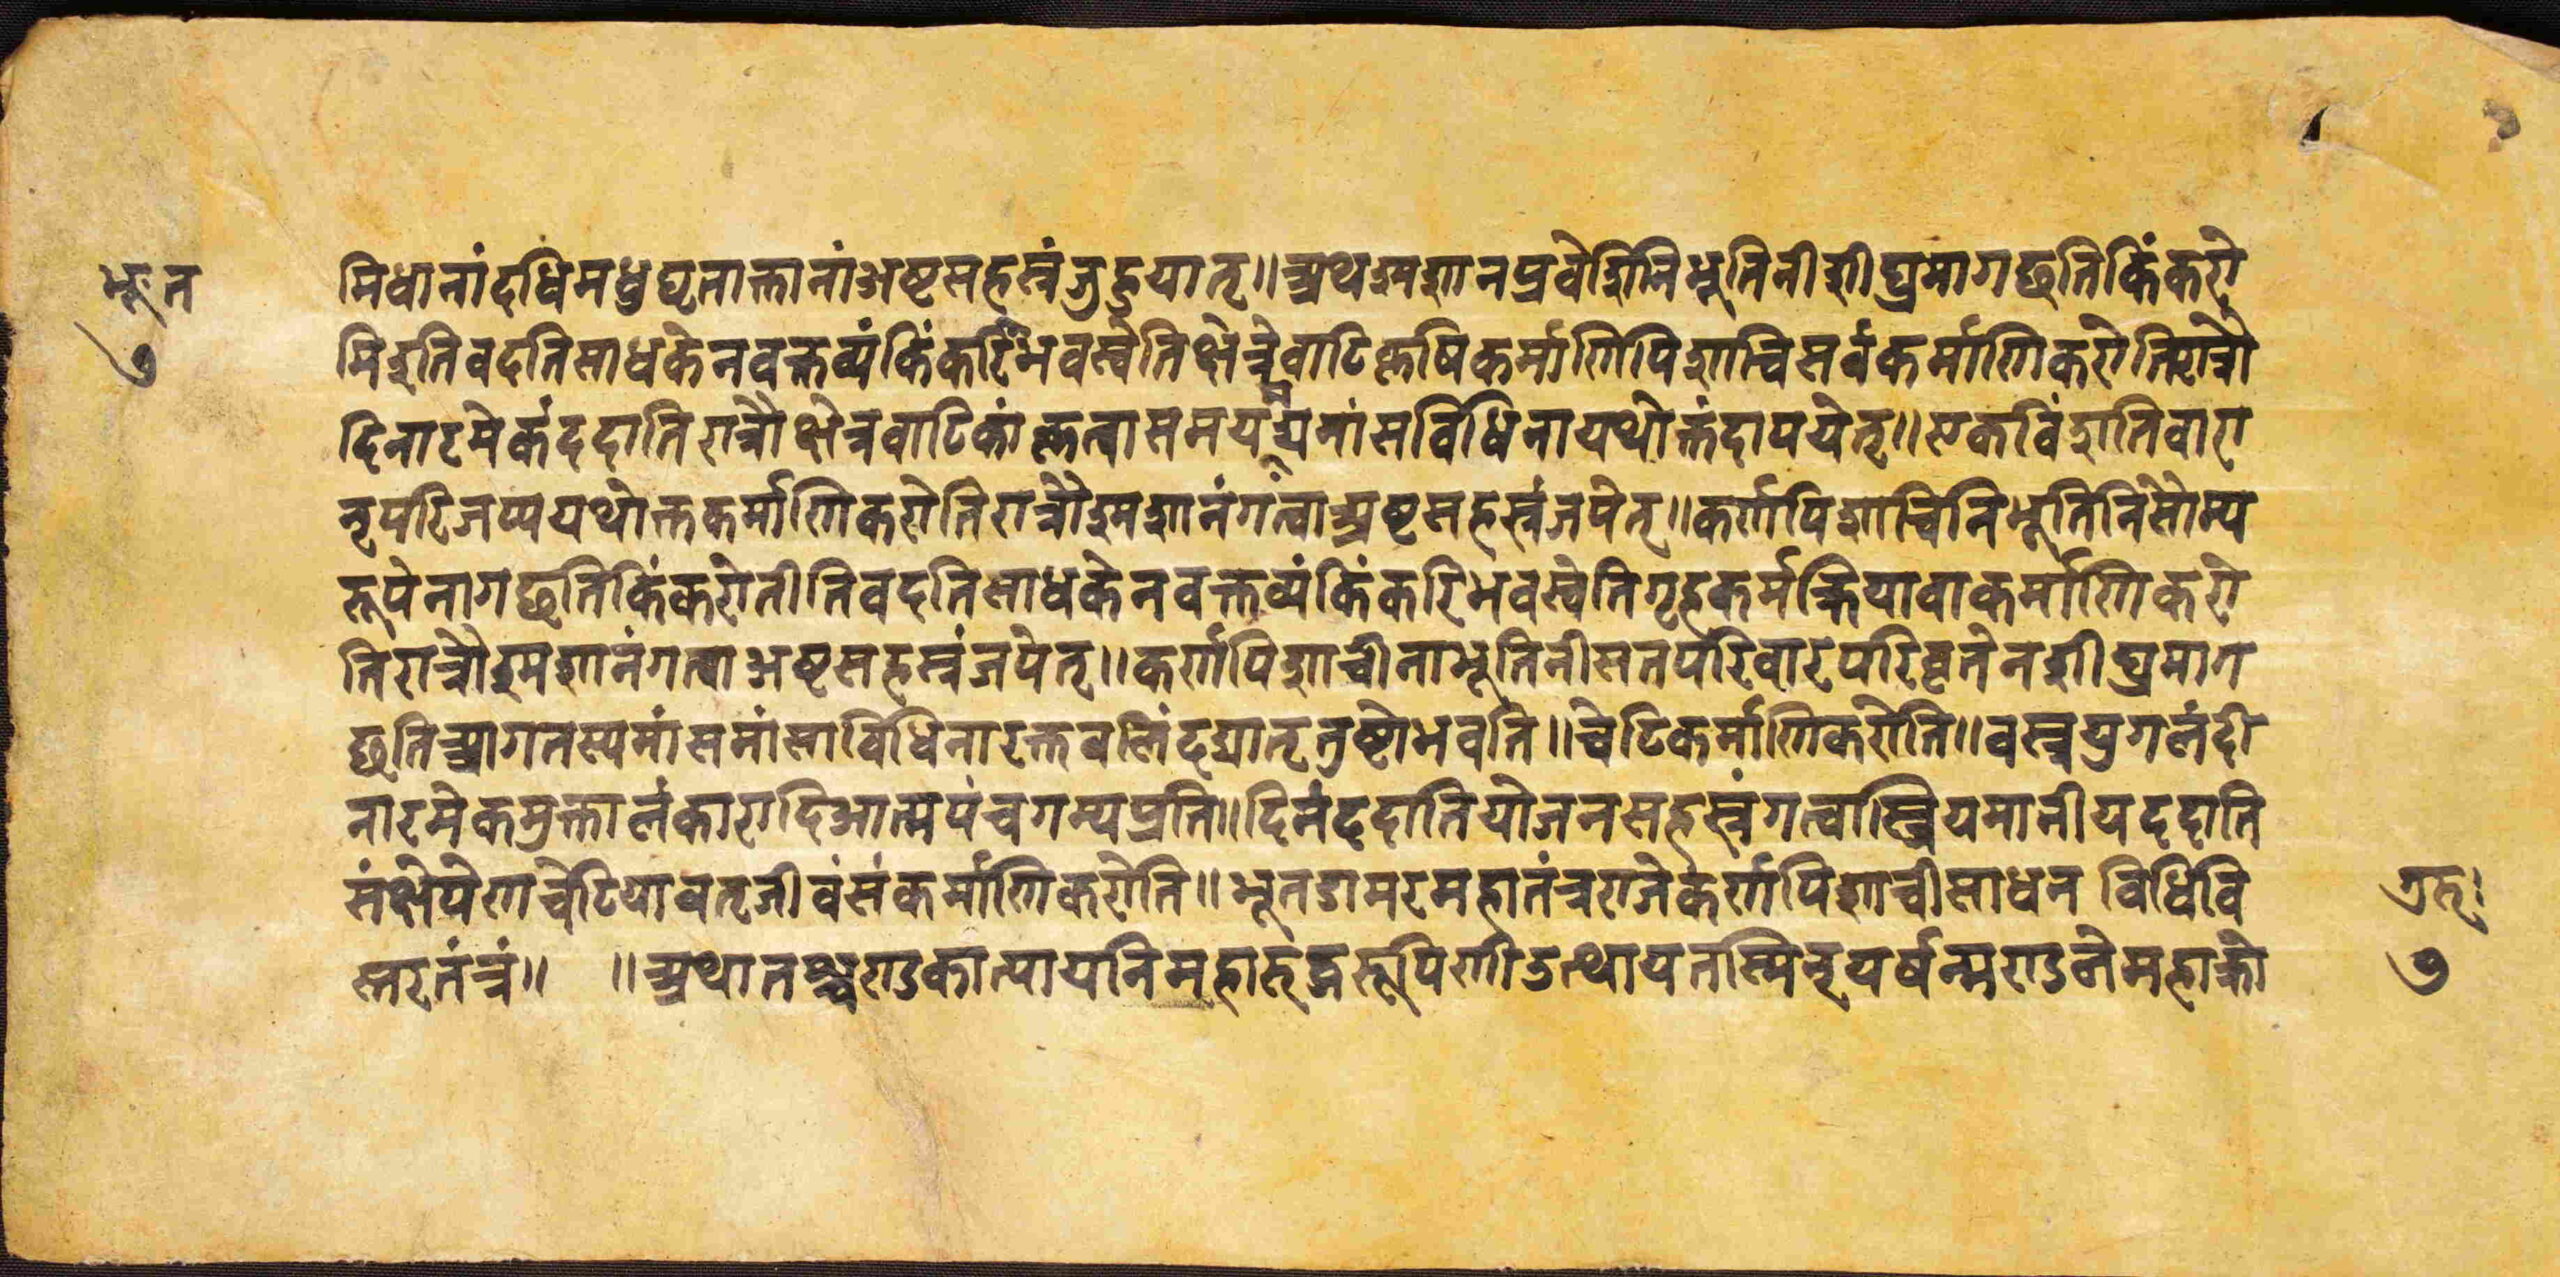 भूत
७
मिधानांदधिमधुघृताक्तानांअष्टसहस्रंजुहुयात्॥अथश्मशानप्रवेशिनिभूतिनीशीघ्रमागछतिकिंकरो
मिइतिवदतिसाधकेनवक्तव्यंकिंकरिंभवस्वेतिक्षेत्रेवाटिकृषिकर्माणिपिशाचिसर्वकर्माणिकरोतिरात्रौ
दिनारमेकंददातिरात्रौक्षेत्रवाटिकांकृत्वासमयद्यमांसविधिनायथोक्तंदापयेत्॥एकविंशतिवारा
न्परिजप्ययथोक्तकर्माणिकरोतिरात्रौश्मशानंगत्वाअष्टसहस्रंजपेत्॥कर्णपिशाचिनिभूतिनिसौम्य
रूपेनागछतिकिंकरोतीतिवदतिसाधकेनवक्तव्यंकिंकरिभवस्वेतिगृहकर्मक्रियावाकर्माणिकरो
तिरात्रौश्मशानंगत्वाअष्टसहस्रंजपेत्॥कर्णपिशाचीनाभूतिनीसतपरिवारपरिवृतेनशीघ्रमाग
छतिआगतस्यमांसमांसाविधिनारक्तबलिंदद्यात्तुष्टोभवति॥चेटिकर्माणिकरोति॥वस्त्रयुगलंदी
नारमेकमुक्तालंकारादिआत्मपंचगम्यप्रति॥दिनंददातियोजनसहस्रंगत्वास्त्रियमानीयददाति
संक्षेपेणचेटियावत्जीवंसंकर्माणिकरोति॥भूतडामरमहातंत्रराजेकर्णपिशाचीसाधन विधिवि
स्तरतंत्रं॥ ॥अथातश्चण्डकात्यायनिमहारुद्ररूपिणीउत्थायतस्मिन्पर्षन्मण्डलेमहाक्रो
गुरुः
७